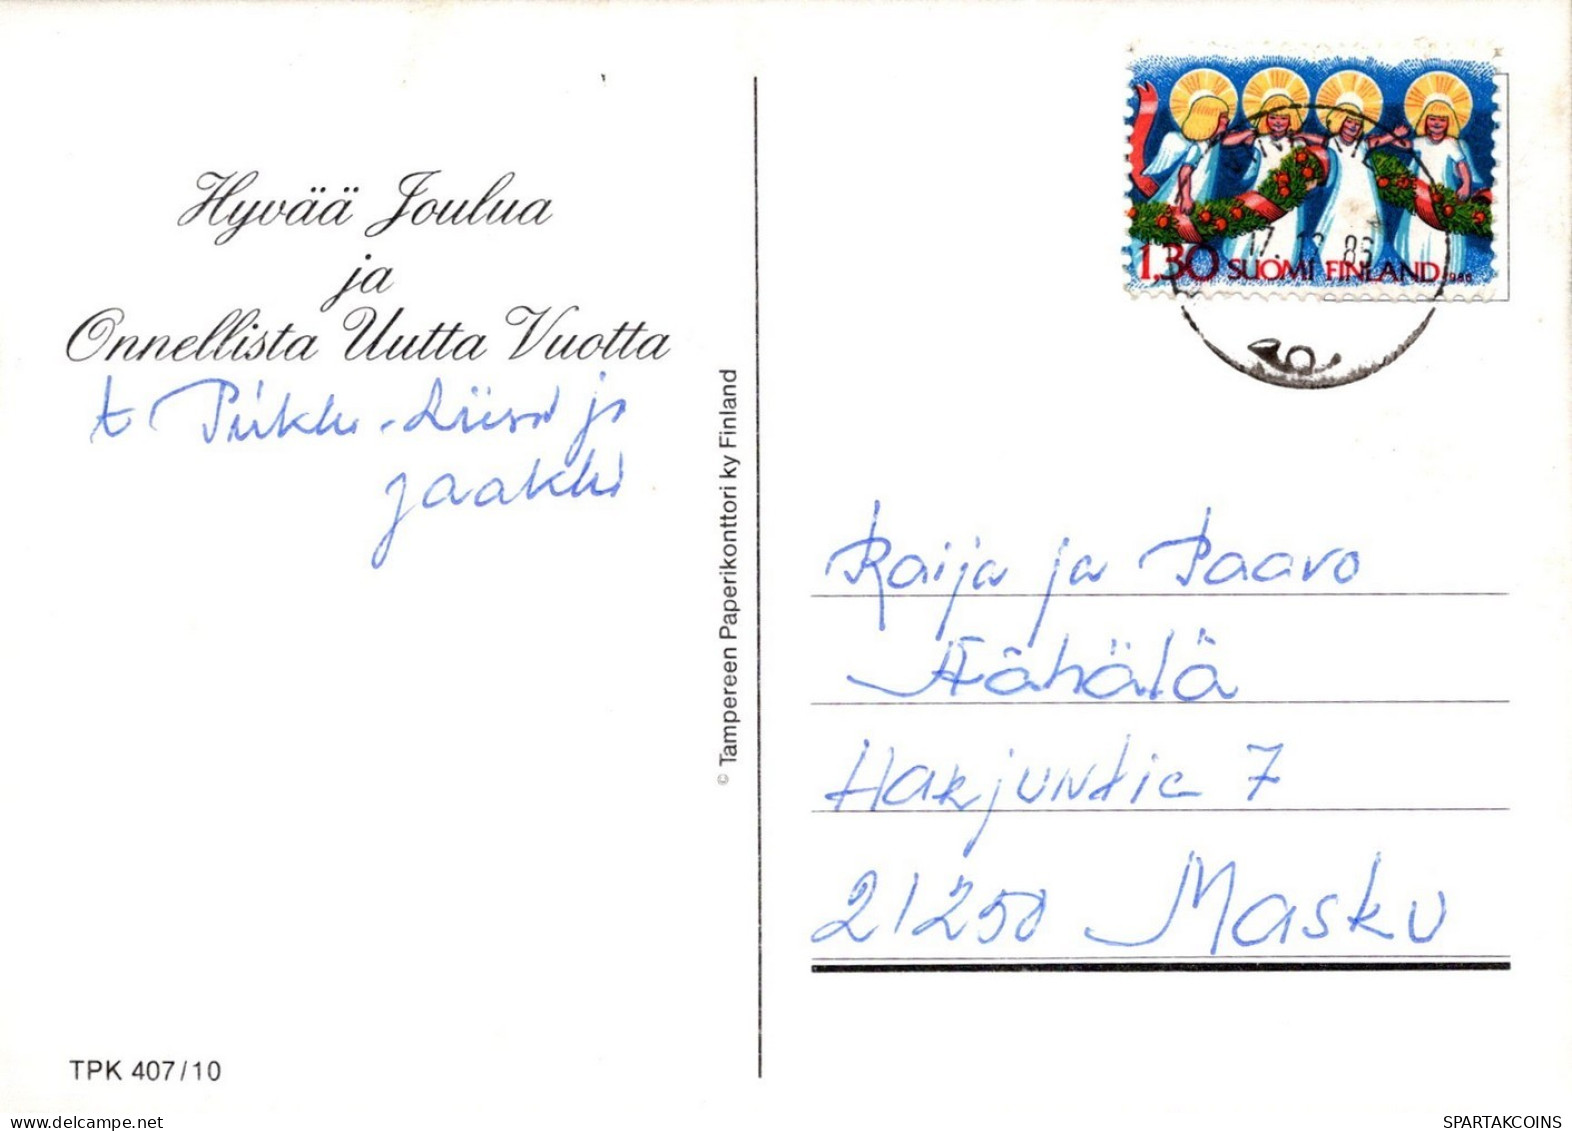 Hyvää Joulua
ja
Onnellista Uutta Vuotta
t. Pirkko-Liisa ja
Jaakko
TPK 407/10
© Tampereen Paperikonttori ky Finland
1,30 SUOMI FINLAND 1986
17.12.86
Raija ja Paavo
Hähälä
Harjuntie 7
21250 Masku
delcampe.net
SPARTAKCOINS